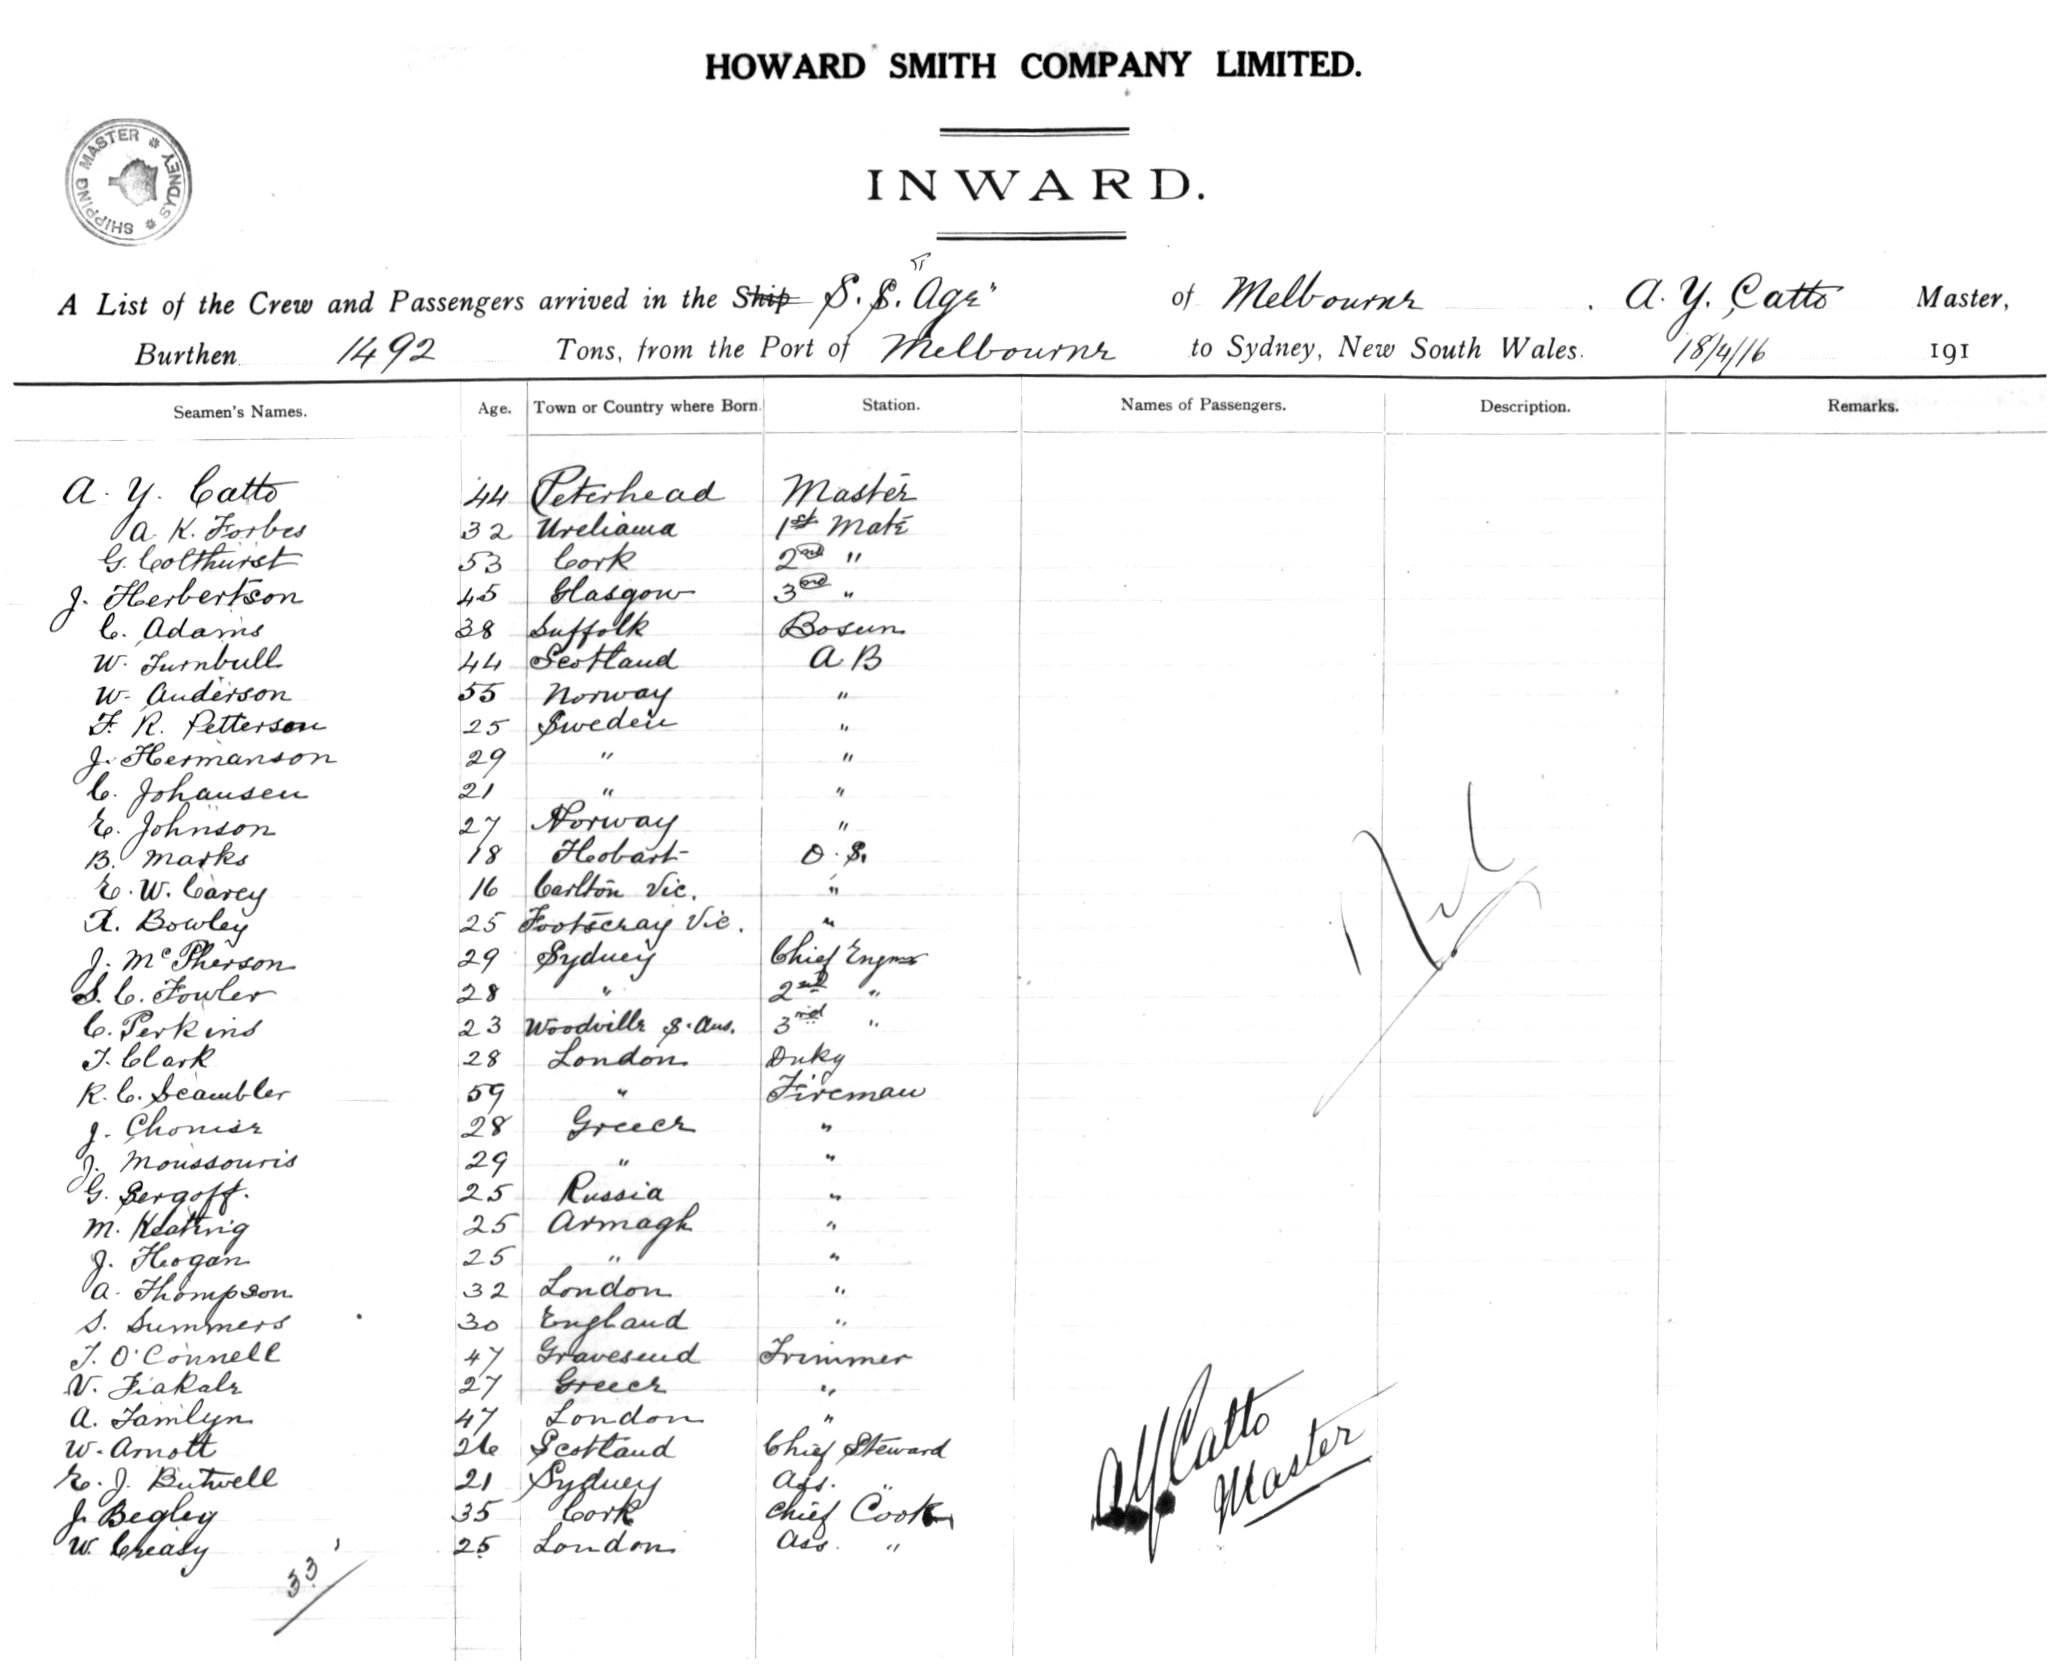 HOWARD SMITH COMPANY LIMITED.
SHIPPING MASTER * SYDNEY *
INWARD.
A List of the Crew and Passengers arrived in the Ship S.S. "Age" of Melbourne. A. Y. Catto Master,
Burthen 1492 Tons, from the Port of Melbourne to Sydney, New South Wales. 18/4/16 191
Seamen's Names. Age. Town or Country where Born. Station. Names of Passengers. Description. Remarks.
A. Y. Catto 44 Peterhead Master
A. K. Forbes 32 1st Mate
G. Colthurst 53 Cork 2nd "
J. Herbertson 45 Glasgow 3rd "
C. Adams 38 Suffolk Bosun
W. Turnbull 44 Scotland A B
W. Anderson 55 Norway "
F. R. Petterson 25 Sweden "
J. Hermanson 29 " "
C. Johansen 21 " "
E. Johnson 27 Norway "
B. Marks 18 Hobart O.S.
E. W. Carey 16 Carlton Vic. "
A. Bowley 25 Footscray Vic. "
J. McPherson 29 Sydney Chief Engner
S. C. Fowler 28 " 2nd "
C. Perkins 23 Woodville S. Aus. 3rd "
T. Clark 28 London Dnky
R. C. Scambler 59 " Fireman
J. 28 Greece "
J. Moussouris 29 " "
G. Sergoff. 25 Russia "
M. Keating 25 Armagh "
J. Hogan 25 " "
A. Thompson 32 London "
S. Summers 30 England "
T. O'Connell 47 Gravesend Trimmer
V. Fiakale 27 Greece "
A. Tamlyn 47 London "
W. Arnott 26 Scotland Chief Steward
E. J. Butwell 21 Sydney Ass. "
J. Begley 35 Cork Chief Cook
W. Creasy 25 London Ass. "
33
Nil
A Y Catto
Master